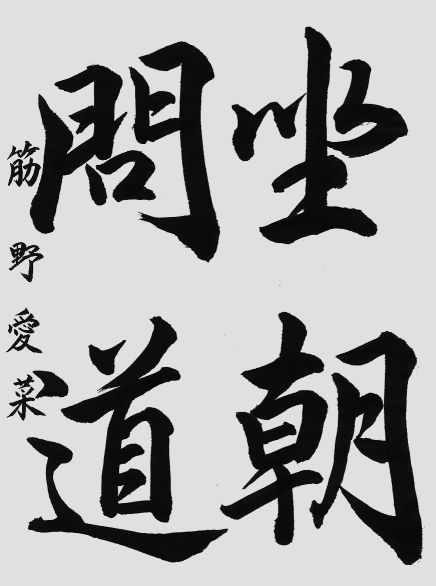 坐朝
問道
筋野愛菜